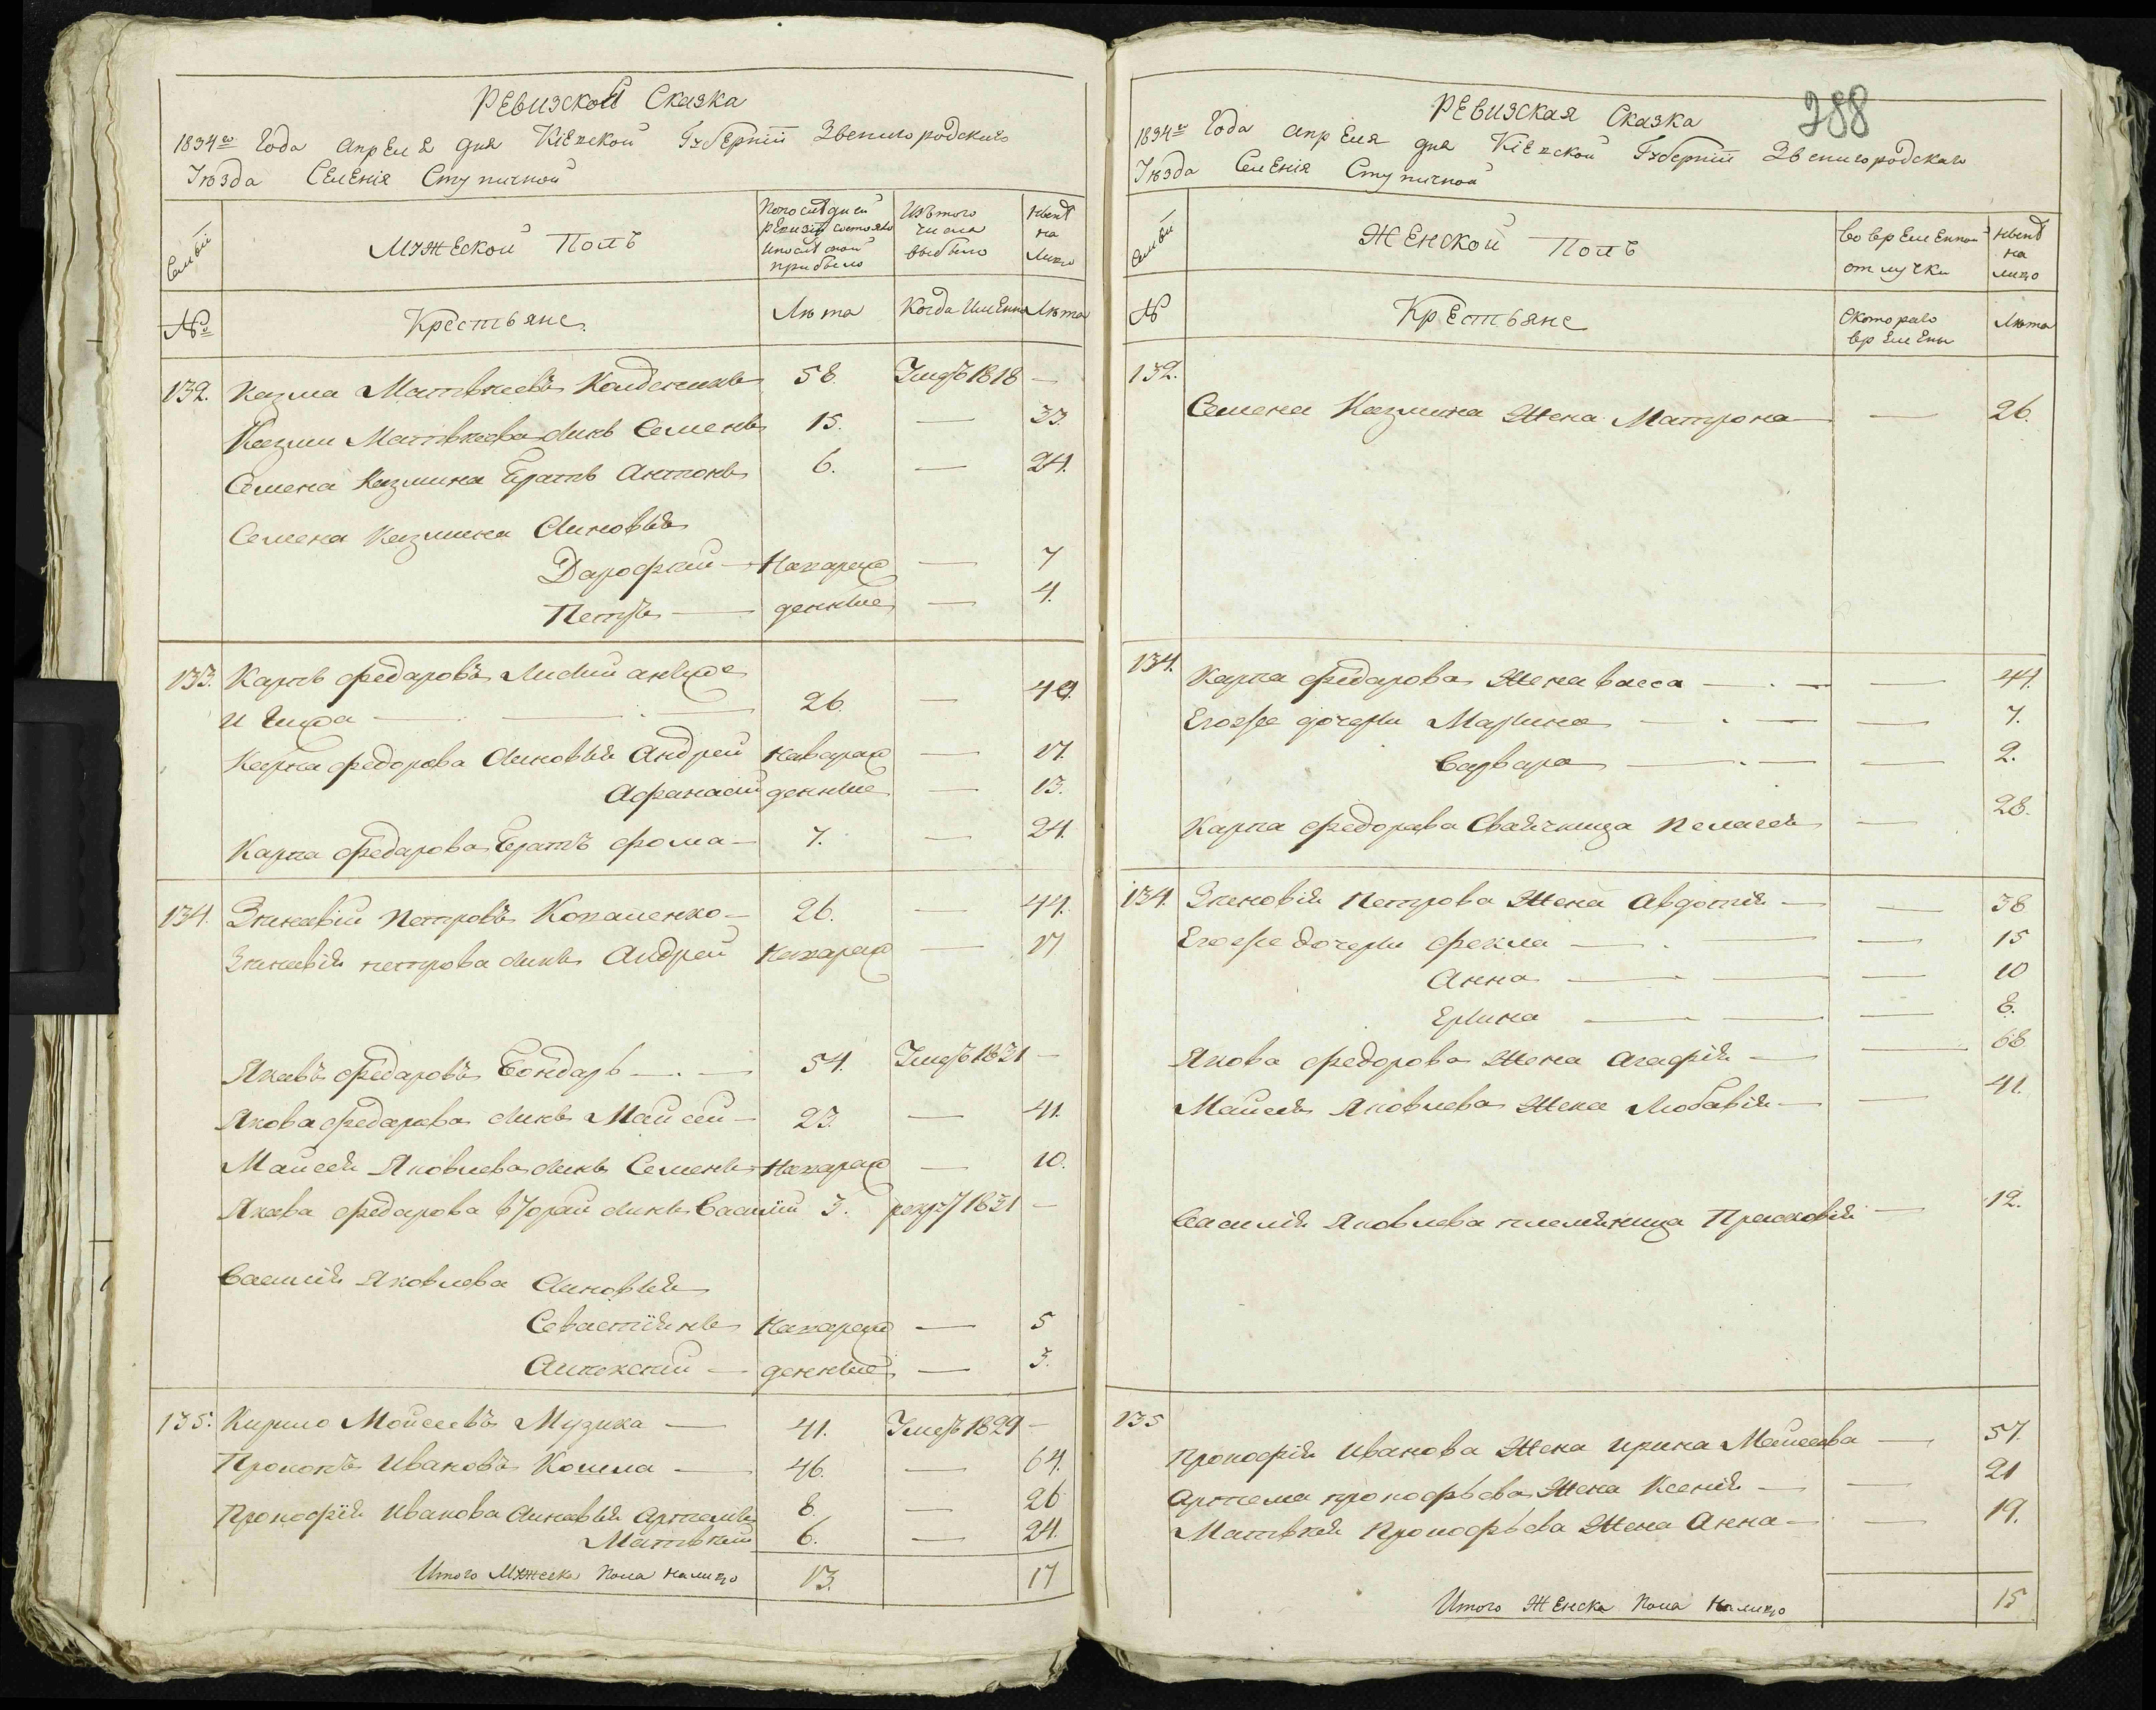 РЕвизской Сказка
1834го Года апрЕля дня КіЕвской ГубЕрніи Звенигородскаго
Уѣзда СЕлЕнія Ступичной
Семьи
МужЕской Полъ
По послѣдней
ревизіи состояло
и послѣ оной
прибыло
Изъ того
числа
выбыло
Нынѣ
на
лицо
№
Крестьяне
Лѣта
Когда ИмЕнно
Лѣта
132. Казма Матвѣевъ 58. Умеръ 1818 —
Казми Матвѣева синъ Семенъ 15. — 33.
Семена Казмина Братъ Антонъ 6. — 24.
Семена Казмина Синовья
Дарофей — Новорож — 7
Петръ — денные — 4.
133. Карпъ Федаровъ
26. — 44.
Карпа Федорова Синовья Андрей Новорож — 17.
Афанасій денные — 13.
Карпа Федарова Братъ Фома — 7. — 24.
134. Зиновій Петровъ Копаленко — 26. — 44.
Зиновія петрова синъ Андрей Новорож — 17
Яковъ Федаровъ Бондарь — 54. Умеръ 1821 —
Якова Федарова синъ Майсей — 23. — 41.
Майсея Яковлева синъ Семенъ Новорож — 10.
Якова Федарова второй синъ Василій 3. рекру 1831 —
Василія Яковлева Синовья
Севастіянъ Новорож — 5
— денные — 3.
135. Кирило Мойсеевъ Музика — 41. Умеръ 1829 —
Прокопъ Ивановъ — 46. — 64.
Прокофія Иванова Синовья Артемъ 8. — 26
Матвѣй 6. — 24.
Итого Мужеска пола налицо 13. 17
РЕвизская Сказка
288
1834го Года апрЕля дня КіЕвской ГубЕрніи Звенигородскаго
Уѣзда СелЕнія Ступичной
Семьи
ЖЕнской Полъ
Во врЕмЕнной
отлучки
Нынѣ
на
лицо
№
КрЕстьяне
Скотораго
врЕмЕны
Лѣта
132.
Семена Казмина Жена Матрона — 26.
134. Карпа Федарова Жена Васса — 44.
Егожъ дочери Марина — 7.
Варвара — 2.
Карпа Федорова Своячница Пелагея — 28.
134. Зиновія Петрова Жена Авдотія — 38
Егожъ Дочери Фекла — 15
Анна — 10
Ерина — 8.
Якова Федорова Жена Агафія — 68
Майсея Яковлева Жена Любавія — 41.
Василія Яковлева племяница Прасковія — 12.
135
Прокофія Иванова Жена Ирина Мойсеева — 57.
Артема прокофьева Жена Ксенія — 21
Матвѣя Прокофьева Жена Анна — 19.
Итого ЖЕнска Пола Налицо 15